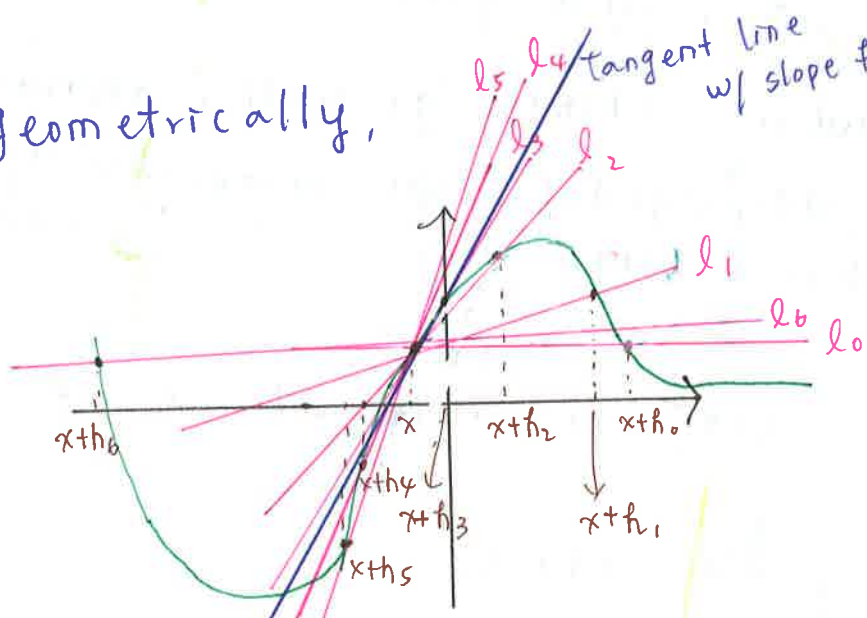 geometrically,
tangent line
w/ slope f
l₅
l₄
l₃
l₂
l₁
l₆
l₀
x+h₆
x
x+h₂
x+h₀
x+h₄
x+h₃
x+h₁
x+h₅